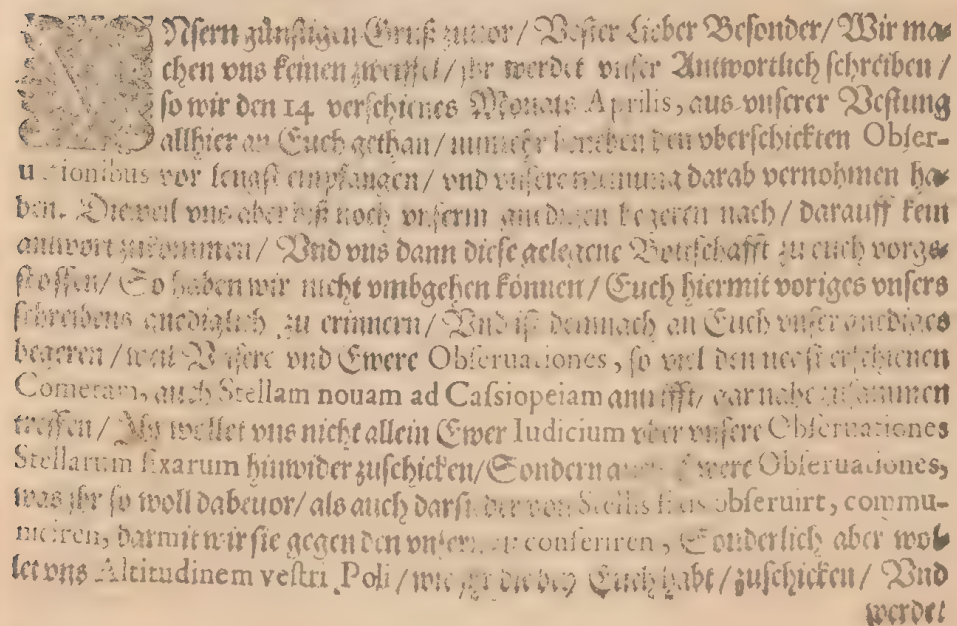 VNsern günstigen Gruß zuuor/ Vester Lieber Besonder/ Wir ma-
chen vns keinen zweiffel/ jhr werdet vnser Antwortlich schreiben/
so wir den 14 verschienes Monats Aprilis, aus vnserer Vestung
allhier an Euch gethan/ nunmehr beneben den vberschickten Obser-
uationibus vor lengst empfangen/ vnd vnsere meinung darab vernohmen ha-
ben. Dieweil vns aber biß noch vnserm gnedigen begeren nach/ darauff kein
antwort zukommen/ Vnd vns dann diese gelegene Botschafft zu euch vorge-
stossen/ So haben wir nicht vmbgehen können/ Euch hiermit voriges vnsers
schreibens gnediglich zu erinnern/ Vnd ist demnach an Euch vnser gnediges
begeren/ weil Vnsere vnd Ewere Obseruationes, so viel den neest erschienen
Cometam, auch Stellam nouam ad Cassiopeiam antrifft/ gar nahe zusammen
treffen/ Jhr wollet vns nicht allein Ewer Iudicium vber vnsere Obseruationes
Stellarum fixarum hinwider zuschicken/ Sondern auch Ewere Obseruationes,
was jhr so woll dabeuor/ als auch darsider von Stellis fixis obseruirt, commu-
niciren, darmit wir sie gegen den vnsern conferiren, Sonderlich aber wol-
let vns Altitudinem vestri Poli/ wie jhr die bey Euch habt/ zuschicken/ Vnd
werdet